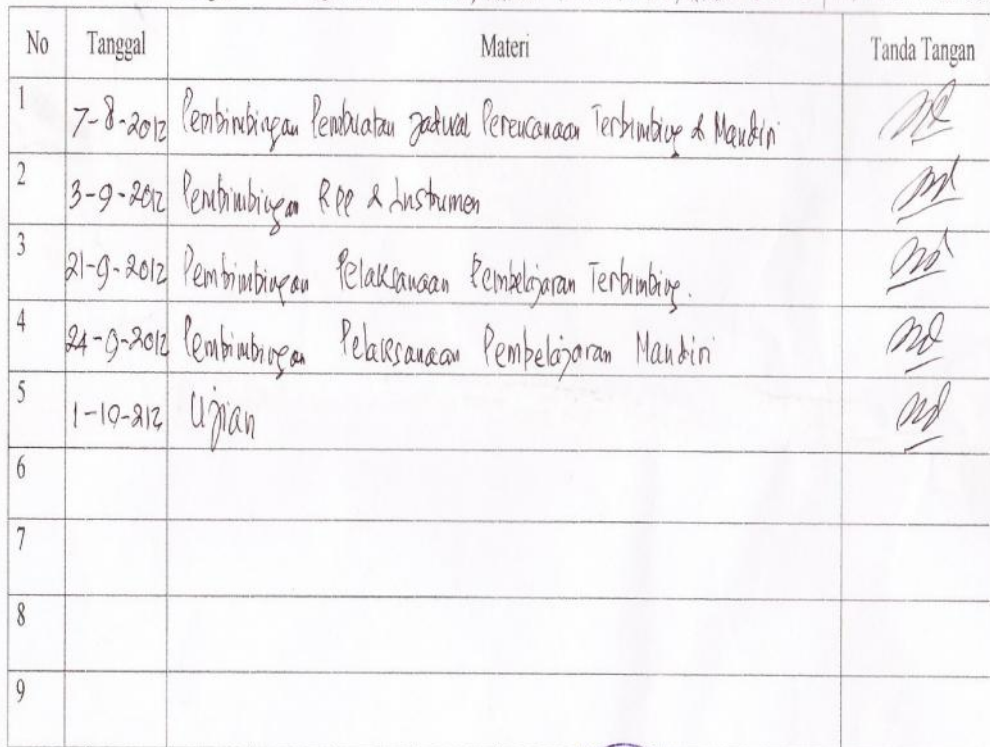 No Tanggal Materi Tanda Tangan
1 7-8-2012 Pembimbingan Pembuatan Jadwal Perencanaan Terbimbing & Mandiri
2 3-9-2012 Pembimbingan RPP & Instrumen
3 21-9-2012 Pembimbingan Pelaksanaan Pembelajaran Terbimbing.
4 24-9-2012 Pembimbingan Pelaksanaan Pembelajaran Mandiri
5 1-10-212 Ujian
6
7
8
9